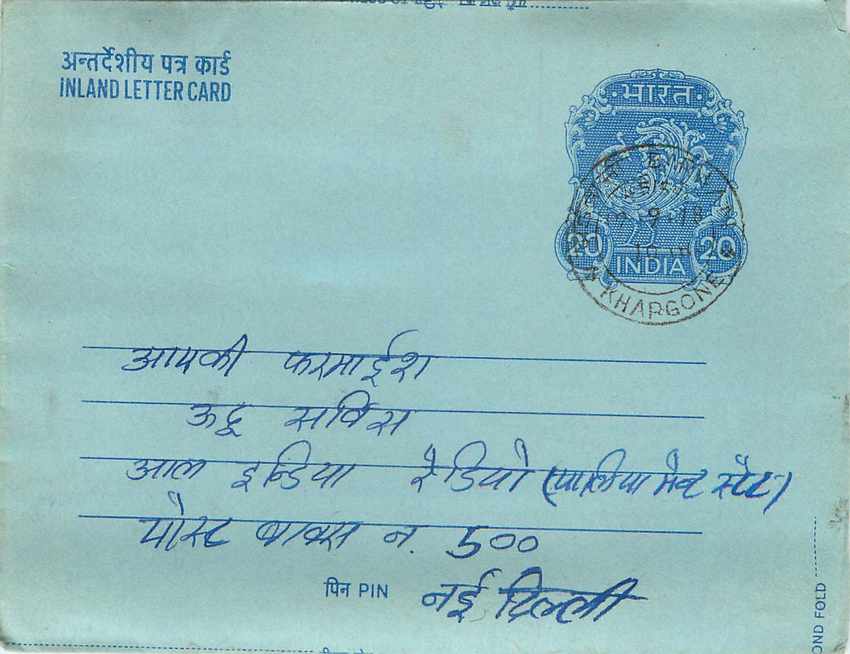 अन्तर्देशीय पत्र कार्ड
INLAND LETTER CARD
भारत
20 20
INDIA
KHARGONE
आपकी फरमाईश
ऊर्दू सर्विस
आल इन्डिया रेडियो (पालिया मेन्ट स्टेट)
पोस्ट बाक्स न. 500
पिन PIN नई दिल्ली
OND FOLD